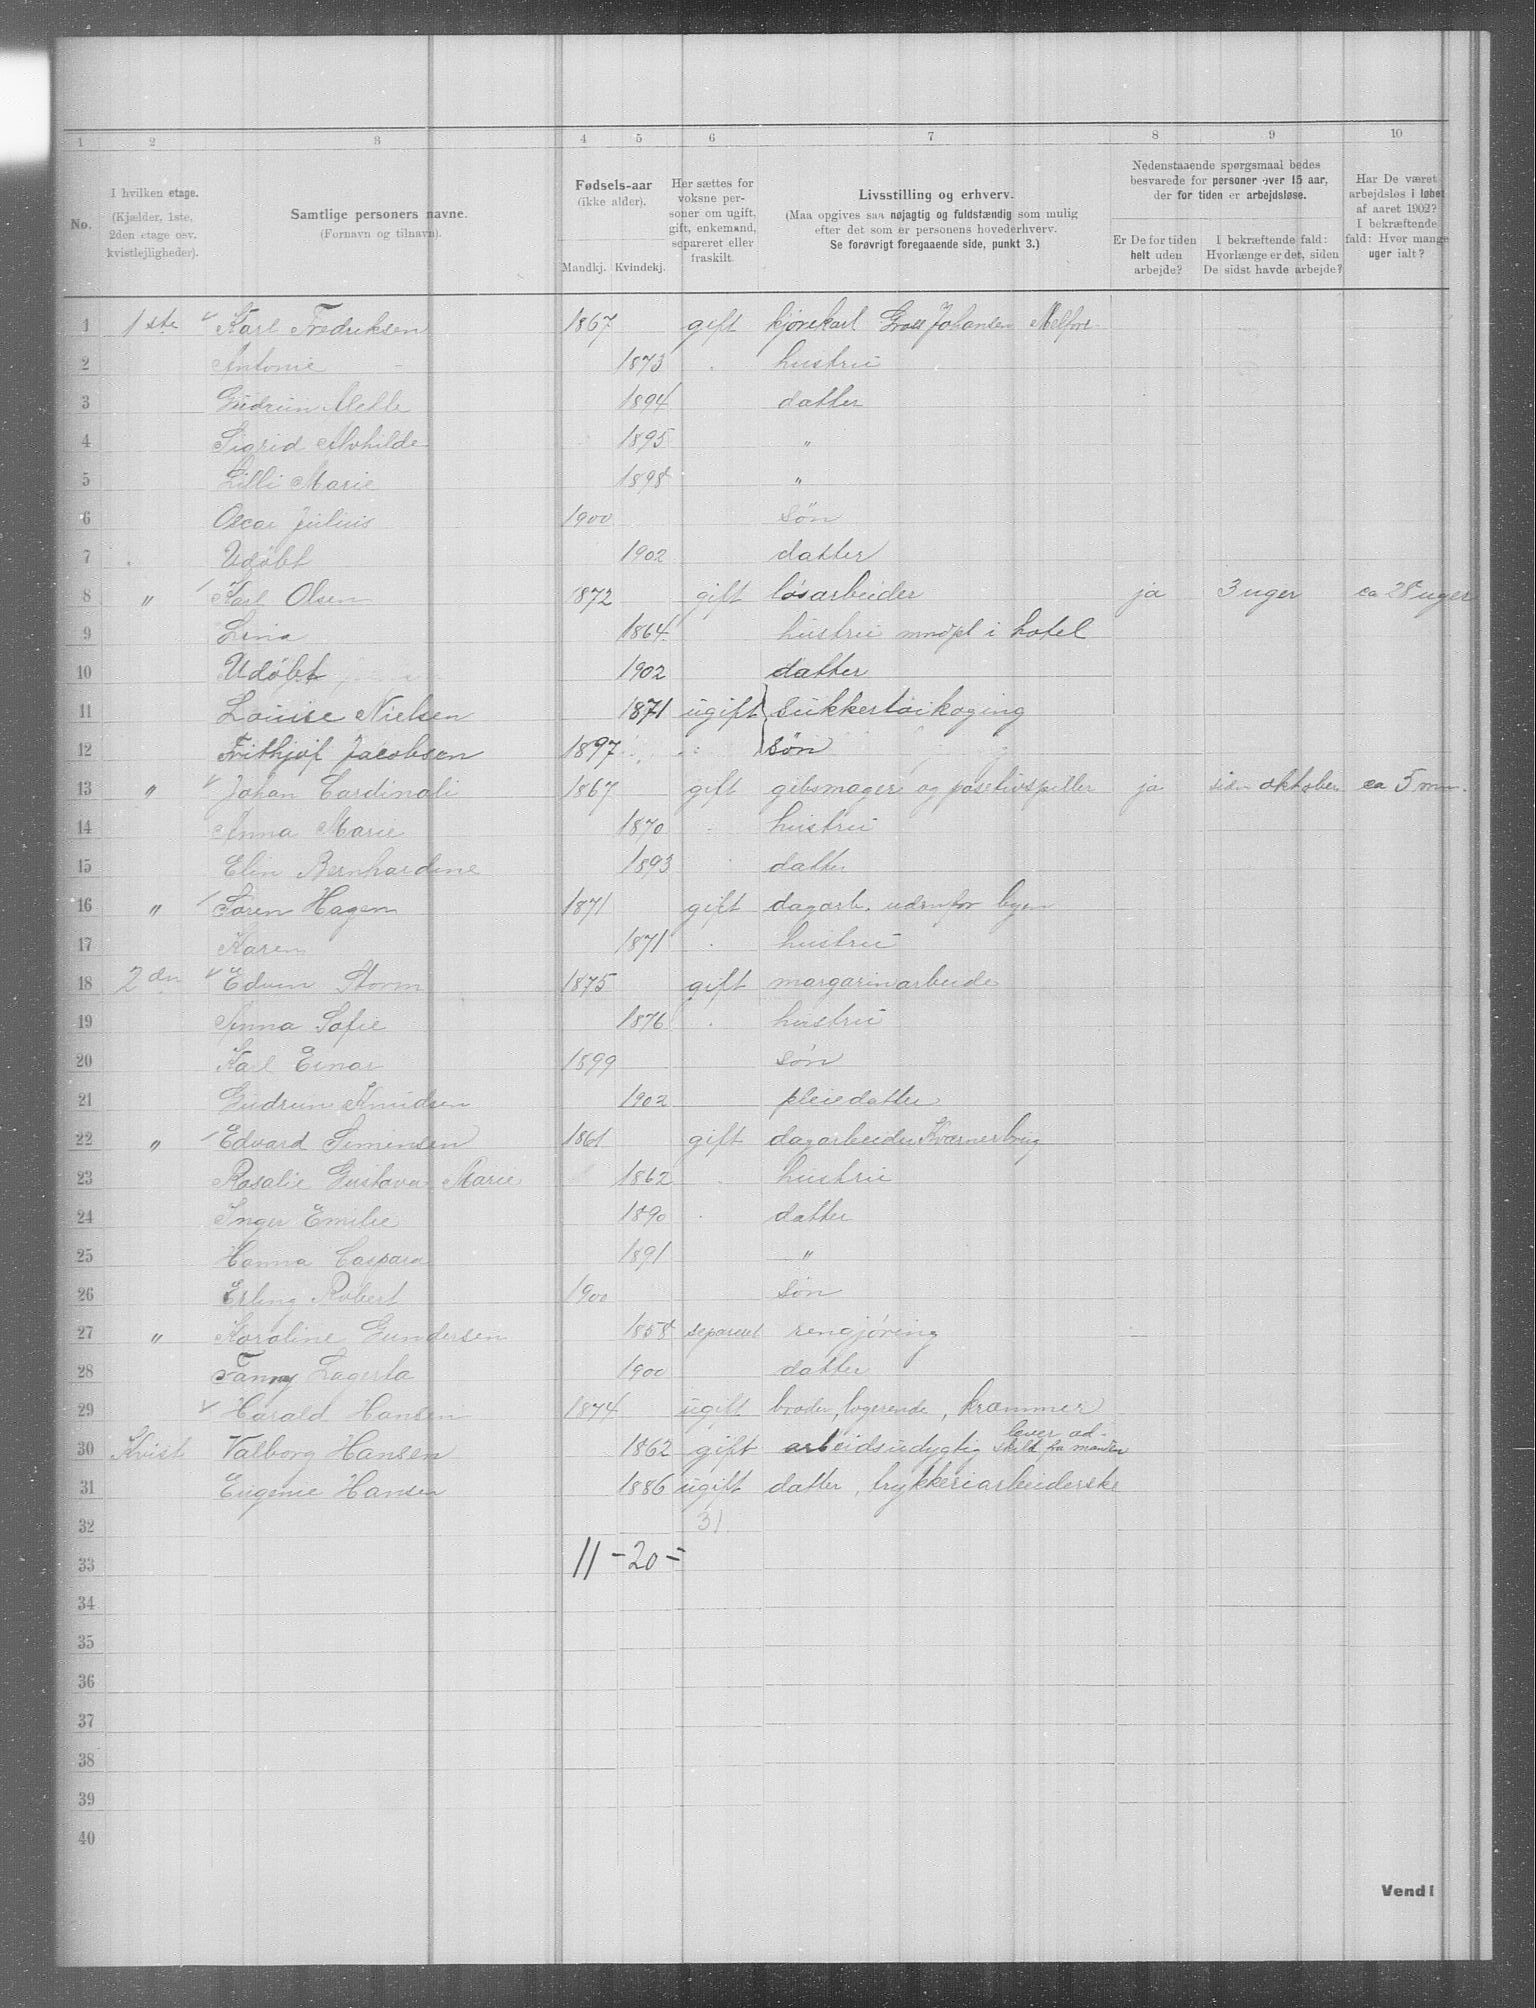 1 2 3 4 5 6 7 8 9 10
No.
I hvilken etage.
(Kjælder, 1ste,
2den etage osv.
kvistlejligheder).
Samtlige personers navne.
(Fornavn og tilnavn).
Fødsels-aar
(ikke alder).
Mandkj. Kvindekj.
Her sættes for
voksne per-
soner om ugift,
gift, enkemand,
separeret eller
fraskilt.
Livsstilling og erhverv.
(Maa opgives saa nøjagtig og fuldstændig som mulig
efter det som er personens hovederhverv.
Se forøvrigt foregaaende side, punkt 3.)
Nedenstaaende spørgsmaal bedes
besvarede for personer over 15 aar,
der for tiden er arbejdsløse.
Er De for tiden
helt uden
arbejde?
I bekræftende fald:
Hvorlænge er det, siden
De sidst havde arbejde?
Har De været
arbejdsløs i løbet
af aaret 1902?
I bekræftende
fald: Hver mange
uger ialt?
1 1ste Karl Fredriksen 1867 gift kjørekarl Johansen
2 Antonie - 1873 " hustru
3 Gudrun 1894 datter
4 Sigrid Alvhilde 1895 "
5 Lilli Marie 1898 "
6 Oscar Julius 1900 søn
7 Udøbt 1902 datter
8 " Karl Olsen 1872 gift løsarbeider ja 3 uger ca 28 uger
9 Lina 1864 hustru i hotel
10 Udøbt 1902 datter
11 Louise Nielsen 1871 ugift sukkertøikoging
12 Frithjof Jacobsen 1897 søn
13 " Johan Cardinali 1867 gift gibsmager og posetivspiller ja siden oktober ca 5 mn.
14 Anna Marie 1870 " hustru
15 Elin Bernhardine 1893 " datter
16 " Søren Hagen 1871 gift dagarb. udenfor byen
17 Karen 1871 " hustru
18 2den Edvin Storm 1875 gift margarinarbeide
19 Anna Sofie 1876 " hustru
20 Karl Einar 1899 søn
21 Gudrun Knudsen 1902 pleiedatter
22 " Edvard Simensen 1861 gift dagarbeider Kværnerbrug
23 Rosalie Gustava Marie 1862 " hustru
24 Inger Emilie 1890 " datter
25 Hanna Caspara 1891 "
26 Erling Robert 1900 søn
27 " Karoline Gundersen 1858 separeret rengjøring
28 Fanny Lagerta 1900 datter
29 Harald Hansen 1874 ugift broder, logerende, kræmmer
30 Kvist Valborg Hansen 1862 gift arbeidsudygtig lever ad-
skilt fra manden
31 Eugenie Hansen 1886 ugift datter, trykkeriarbeiderske
32 31
33 11 - 20 =
34
35
36
37
38
39
40
Vend!